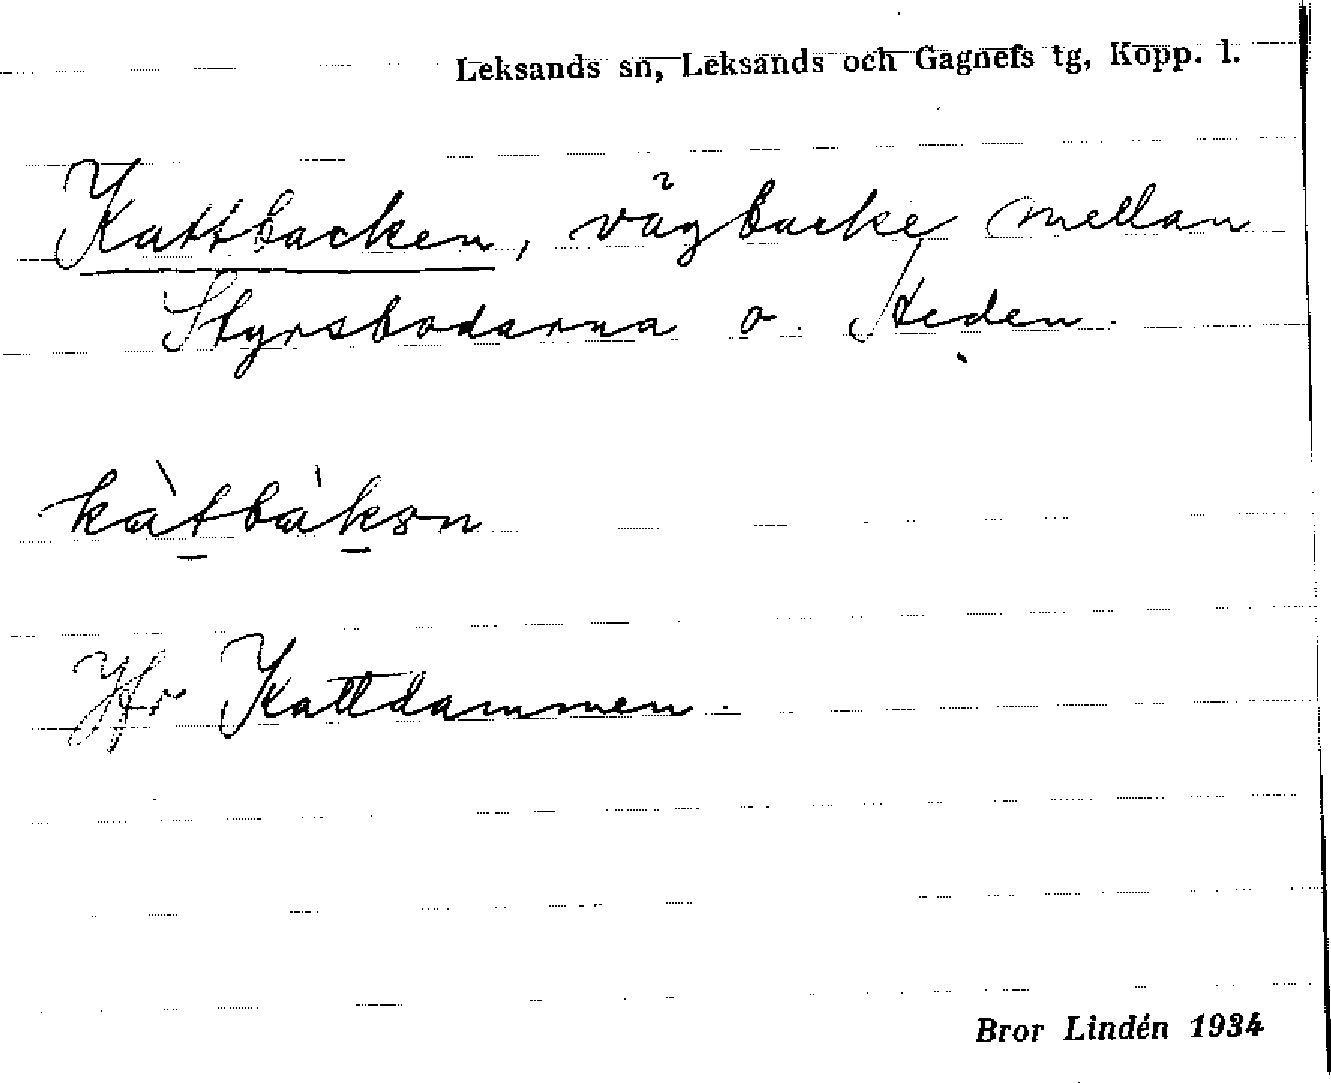 Leksands sn, Leksands och Gagnefs tg, Kopp. l.
Kattbacken, vägbacke mellan
Styrsbodarna o. Heden.
kàtbàkən
Jfr Kattdammen.
Bror Lindén 1934